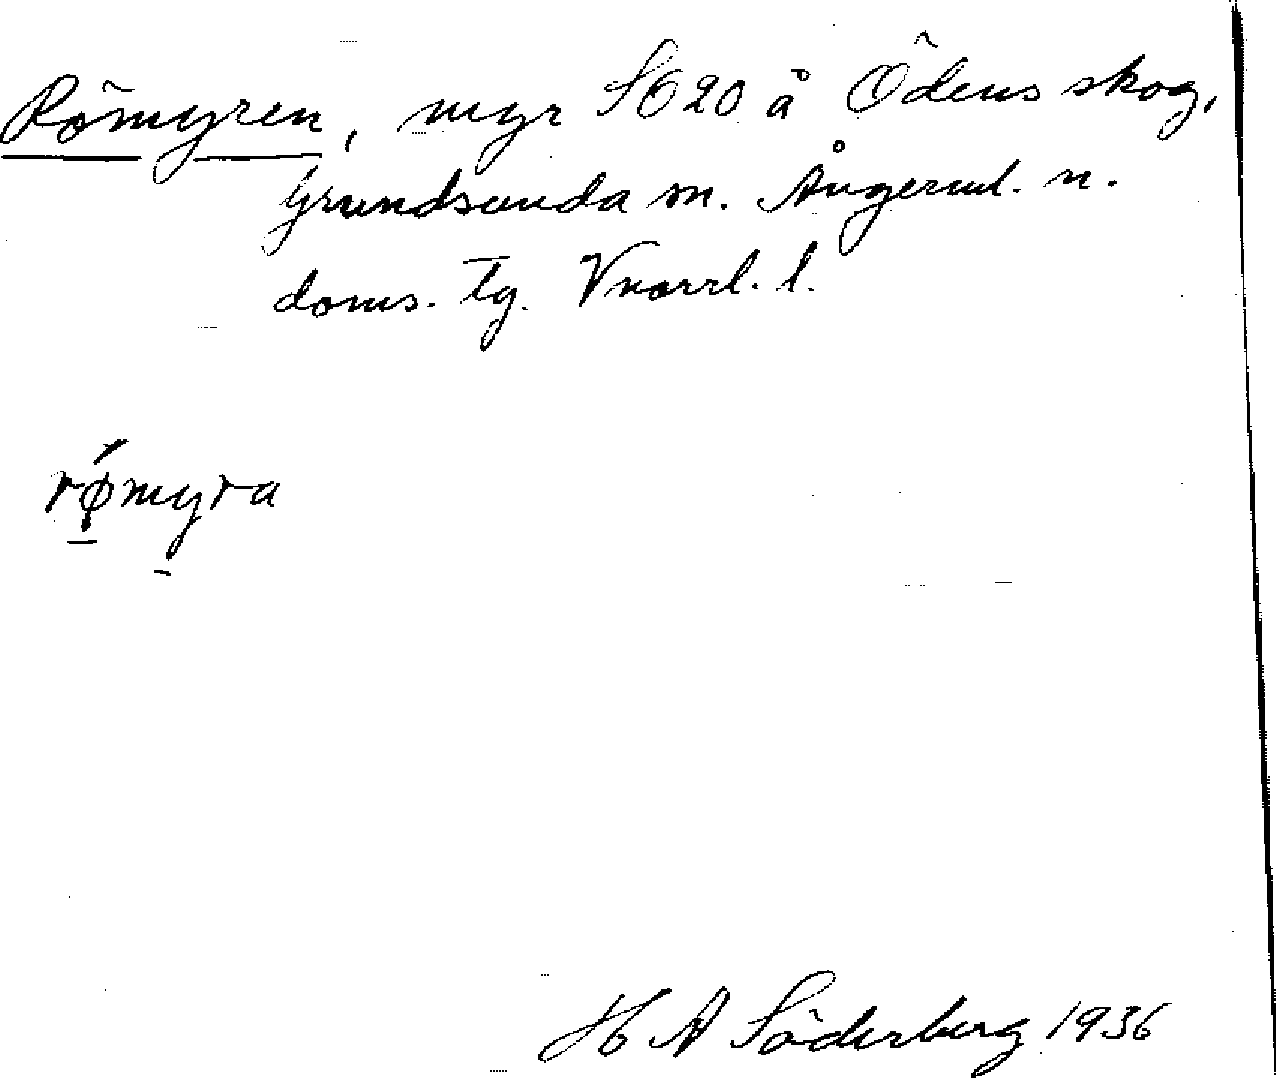 Römyren, myr S620 å Ödens skog,
Grundsunda sn. Ångerml. n.
doms. tg. Vnorrl. l.
rǿ̱my̠ra
H A Söderberg 1936